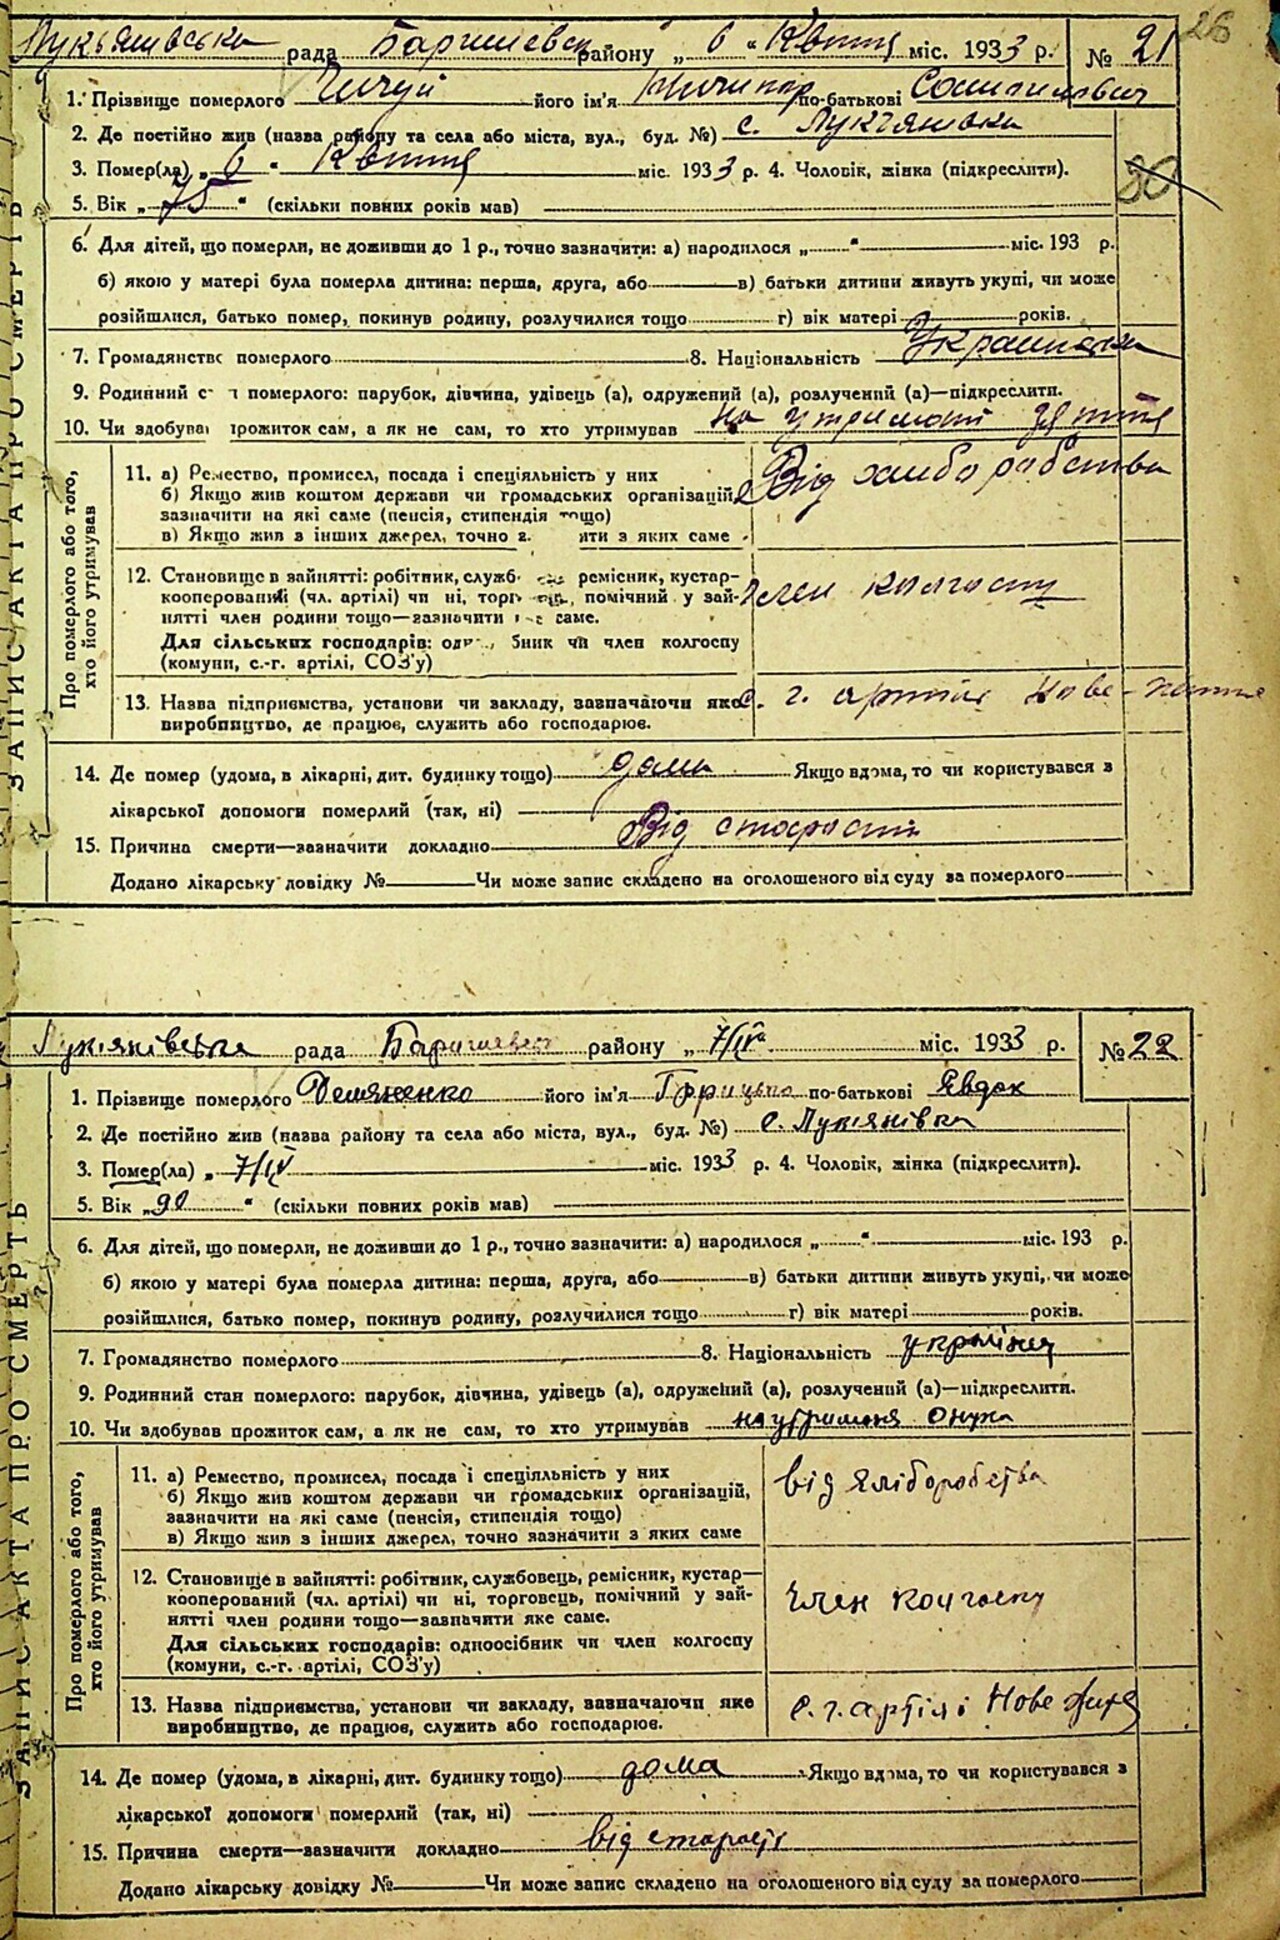 26
Лукьянивська рада Баришевск району „ 6 “ Квітня міс. 1933 р. № 21
1. Прізвище померлого його ім'я Ничипор по-батькові
2. Де постійно жив (назва району та села або міста, вул., буд. №) с. Лукьянивка
3. Помер(ла) „ 6 “ Квітня міс. 1933 р. 4. Чоловік, жінка (підкреслити).
5. Вік „ 75 “ (скільки повних років мав)
6. Для дітей, що померли, не доживши до 1 р., точно зазначити: а) народилося „ “ міс. 193 р.
б) якою у матері була померла дитина: перша, друга, або в) батьки дитини живуть укупі, чи може
розійшлися, батько помер, покинув родину, розлучилися тощо г) вік матері років.
7. Громадянство померлого 8. Національність
9. Родинний с п померлого: парубок, дівчина, удівець (а), одружений (а), розлучений (а)—підкреслити.
10. Чи здобував прожиток сам, а як не сам, то хто утримував на
ЗАПИС АКТА ПРО СМЕРТЬ
Про померлого або того,
хто його утримував
11. а) Ремество, промисел, посада і спеціяльність у них
б) Якщо жив коштом держави чи громадських організацій,
зазначити на які саме (пенсія, стипендія тощо)
в) Якщо жив з інших джерел, точно з яких саме
Від хлиборобства
12. Становище в зайнятті: робітник, служб ремісник, кустар—
кооперований (чл. артілі) чи ні, торг помічний у зай-
нятті член родини тощо—зазначити саме.
Для сільських господарів: од бник чи член колгоспу
(комуни, с.-г. артілі, СОЗ'у)
член колгоспу
13. Назва підприємства, установи чи закладу, зазначаючи яке
виробництво, де працює, служить або господарює.
с. г. артіль Нове-життє
14. Де помер (удома, в лікарні, дит. будинку тощо) дома Якщо вдома, то чи користувався з
лікарської допомоги померлий (так, ні)
15. Причина смерти—зазначити докладно Від старости
Додано лікарську довідку № Чи може запис складено на оголошеного від суду за померлого
Лукянівська рада Баришевск району „ 7/IV міс. 1933 р. № 22
1. Прізвище померлого Демяненко його ім'я Грицько по-батькові Явдок
2. Де постійно жив (назва району та села або міста, вул., буд. №) с. Лукянівка
3. Помер(ла) „ 7/IV міс. 1933 р. 4. Чоловік, жінка (підкреслити).
5. Вік „ 90 “ (скільки повних років мав)
6. Для дітей, що померли, не доживши до 1 р., точно зазначити: а) народилося „ “ міс. 193 р.
б) якою у матері була померла дитина: перша, друга, або в) батьки дитини живуть укупі, чи може
розійшлися, батько помер, покинув родину, розлучилися тощо г) вік матері років.
7. Громадянство померлого 8. Національність україня
9. Родинний стан померлого: парубок, дівчина, удівець (а), одружений (а), розлучений (а)—підкреслити.
10. Чи здобував прожиток сам, а як не сам, то хто утримував на утриманя Онука
ЗАПИС АКТА ПРО СМЕРТЬ
Про померлого або того,
хто його утримував
11. а) Ремество, промисел, посада і спеціяльність у них
б) Якщо жив коштом держави чи громадських організацій,
зазначити на які саме (пенсія, стипендія тощо)
в) Якщо жив з інших джерел, точно зазначити з яких саме
від хліборобства
12. Становище в зайнятті: робітник, службовець, ремісник, кустар—
кооперований (чл. артілі) чи ні, торговець, помічний у зай-
нятті член родини тощо—зазначити яке саме.
Для сільських господарів: одноосібник чи член колгоспу
(комуни, с.-г. артілі, СОЗ'у)
Член колгоспу
13. Назва підприємства, установи чи закладу, зазначаючи яке
виробництво, де працює, служить або господарює.
с. г. артілі Нове житя
14. Де помер (удома, в лікарні, дит. будинку тощо) дома Якщо вдома, то чи користувався з
лікарської допомоги померлий (так, ні)
15. Причина смерти—зазначити докладно від старості
Додано лікарську довідку № Чи може запис складено на оголошеного від суду за померлого